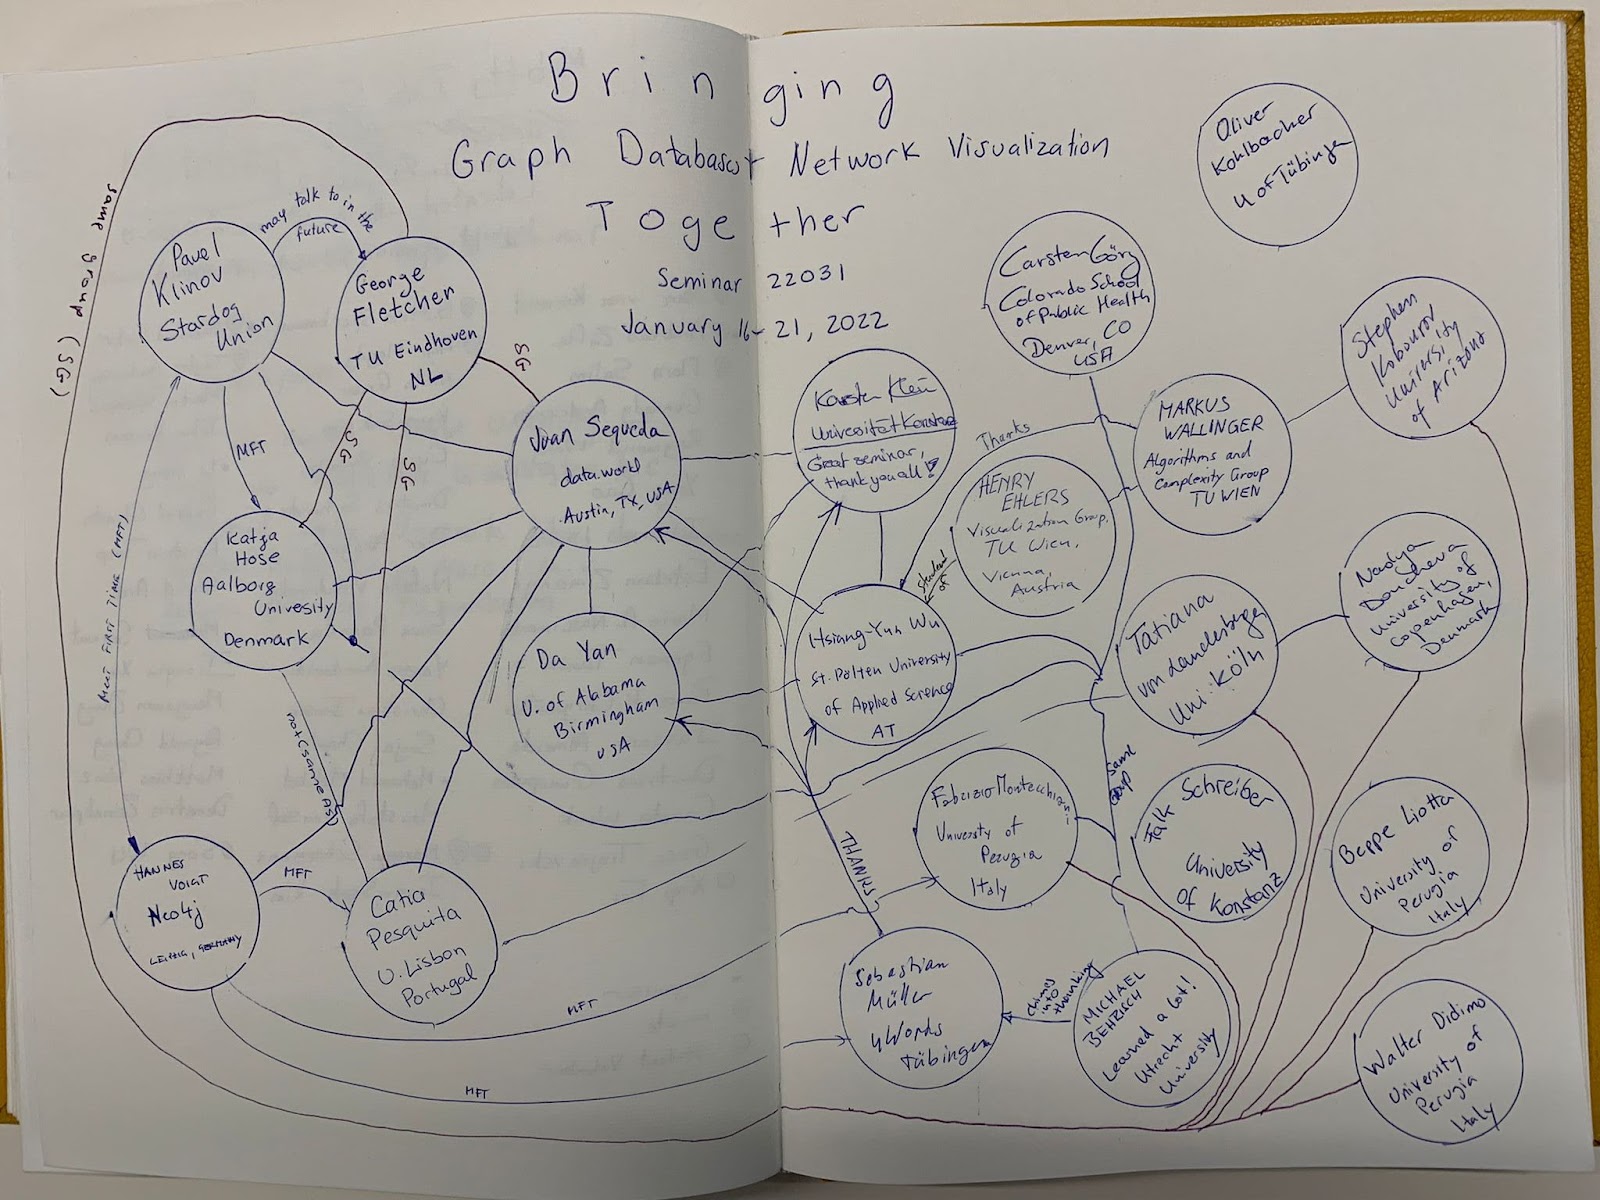 Bringing
Graph Databases + Network Visualization
Together
Seminar 22031
January 16-21, 2022
Oliver
Kohlbacher
U of Tübingen
same group (SG)
Pavel
Klinov
Stardog
Union
may talk to in the
future
George
Fletcher
TU Eindhoven
NL
SG
Carsten Görg
Colorado School
of Public Health
Denver, CO
USA
Stephen
Kobourov
University
of Arizona
Juan Sequeda
data.world
Austin, TX, USA
Karsten Klein
Universität Konstanz
Great seminar,
thank you all!
Thanks
MARKUS
WALLINGER
Algorithms and
Complexity Group
TU WIEN
HENRY
EHLERS
Visualization Group,
TU Wien,
Vienna,
Austria
student
of
MFT
SG
SG
Katja
Hose
Aalborg
Univesity
Denmark
MEET FIRST TIME (MFT)
Da Yan
U. of Alabama
Birmingham
USA
Hsiang-Yun Wu
St. Pölten University
of Applied Science
AT
Tatiana
von Landesberger
Uni. Köln
Nadya
Doncheva
University of
Copenhagen,
Denmark
not(sameAs)
same
group
Fabrizio Montecchiani
University of
Perugia
Italy
Falk Schreiber
University
of Konstanz
Beppe Liotta
University of
Perugia
Italy
HANNES
VOIGT
Neo4j
LEIPZIG, GERMANY
MFT
Catia
Pesquita
U. Lisbon
Portugal
THANKS
MFT
MFT
Sebastian
Müller
yWorks
Tübingen
chimes
into
thanking
MICHAEL
BEHRISCH
Learned a lot!
Utrecht
University
Walter Didimo
University of
Perugia
Italy